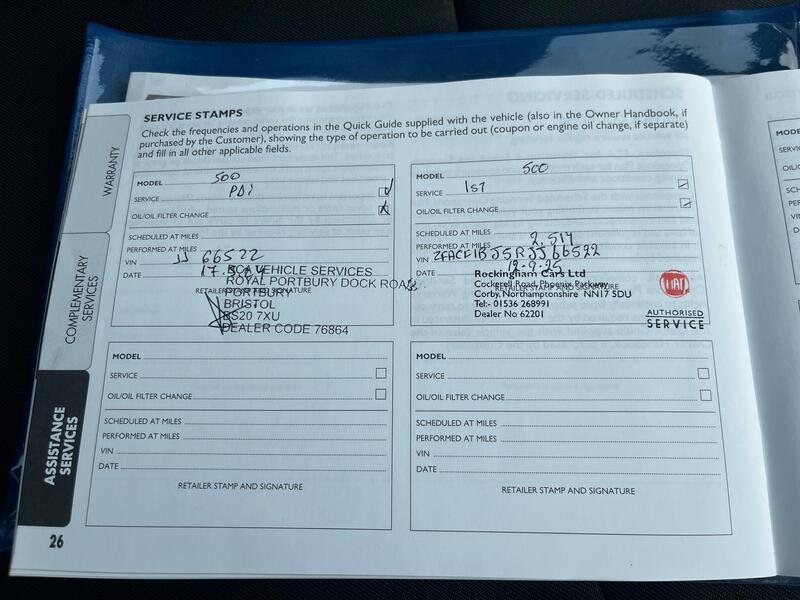 SERVICE STAMPS
Check the frequencies and operations in the Quick Guide supplied with the vehicle (also in the Owner Handbook, if
purchased by the Customer), showing the type of operation to be carried out (coupon or engine oil change, if separate)
and fill in all other applicable fields.
WARRANTY
COMPLEMENTARY
SERVICES
ASSISTANCE
SERVICES
MODEL 500
SERVICE PDi
OIL/OIL FILTER CHANGE
SCHEDULED AT MILES
PERFORMED AT MILES
VIN JJ 66522
DATE 17.
RETAILER STAMP AND SIGNATURE
BCA VEHICLE SERVICES
ROYAL PORTBURY DOCK ROAD
PORTBURY
BRISTOL
BS20 7XU
DEALER CODE 76864
MODEL 500
SERVICE 1ST
OIL/OIL FILTER CHANGE
SCHEDULED AT MILES
PERFORMED AT MILES 2,514
VIN ZFACF1BJ5RJJ66522
DATE 12.9.25
RETAILER STAMP AND SIGNATURE
Rockingham Cars Ltd
Cockerell Road, Phoenix Parkway
Corby, Northamptonshire NN17 5DU
Tel:- 01536 268991
Dealer No 62201
FIAT
AUTHORISED
SERVICE
MODEL
SERVICE
OIL/OIL FILTER CHANGE
SCHEDULED AT MILES
PERFORMED AT MILES
VIN
DATE
RETAILER STAMP AND SIGNATURE
MODEL
SERVICE
OIL/OIL FILTER CHANGE
SCHEDULED AT MILES
PERFORMED AT MILES
VIN
DATE
RETAILER STAMP AND SIGNATURE
26